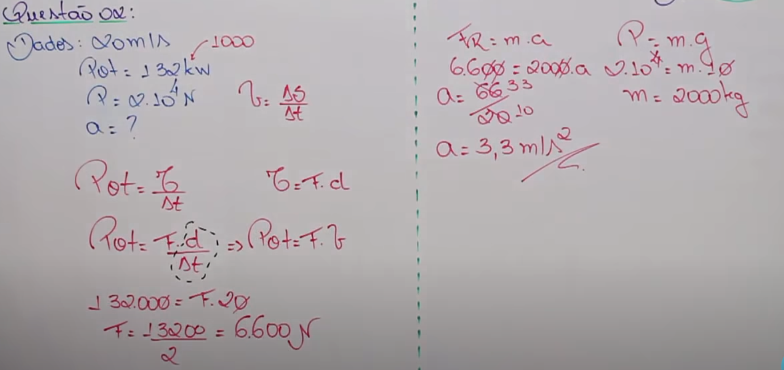 Questão 02:
Dados: 20m/s
1000
Pot = 132kw
P = 2.10⁴N
a = ?
v = ΔS/Δt
Pot = τ/Δt
τ = F.d
Pot = F.d/Δt => Pot = F.v
132.000 = F.20
F = 13200/2 = 6.600N
FR = m.a
6.600 = 2000.a
a = 66/20 33 10
a = 3,3 m/s²
P = m.g
2.10⁴ = m.10
m = 2000kg